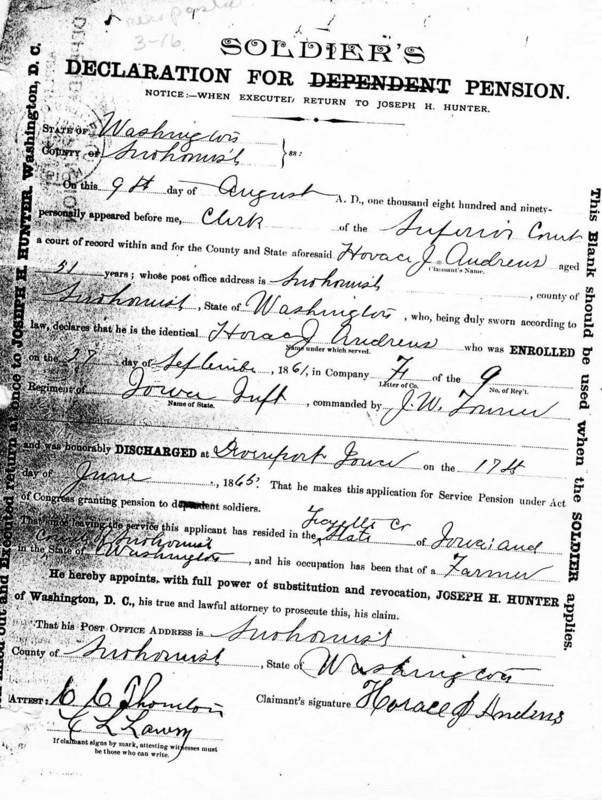 3-16
SOLDIER'S
DECLARATION FOR DEPENDENT PENSION.
NOTICE:—WHEN EXECUTED RETURN TO JOSEPH H. HUNTER.
STATE OF Washington
COUNTY OF Snohomish } ss:
On this 9th day of August A. D., one thousand eight hundred and ninety-
personally appeared before me, Clerk of the Superior Court
a court of record within and for the County and State aforesaid Horace J. Andrews aged
Claimant's Name.
51 years; whose post office address is Snohomish, county of
Snohomish, State of Washington, who, being duly sworn according to
law, declares that he is the identical Horace J Andrews who was ENROLLED
Name under which served.
on the 27 day of September, 1861, in Company F of the 9
Letter of Co. No. of Reg't.
Regiment of Iowa Inft, commanded by J. W.
Name of State.
and was honorably DISCHARGED at Davenport Iowa on the 17th
day of June, 1865. That he makes this application for Service Pension under Act
of Congress granting pension to dependent soldiers.
That since leaving the service this applicant has resided in the Fayette Co State of Iowa and
County of Snohomish
in the State of Washington, and his occupation has been that of a Farmer
He hereby appoints, with full power of substitution and revocation, JOSEPH H. HUNTER
of Washington, D. C., his true and lawful attorney to prosecute this, his claim.
That his POST OFFICE ADDRESS is Snohomish
County of Snohomish, State of Washington
ATTEST: C. C. Thornton Claimant's signature Horace J Andrews
C L Lawry
If claimant signs by mark, attesting witnesses must
be those who can write.
This Blank should be used when the SOLDIER applies.
out and Executed return at once to JOSEPH H. HUNTER, Washington, D. C.